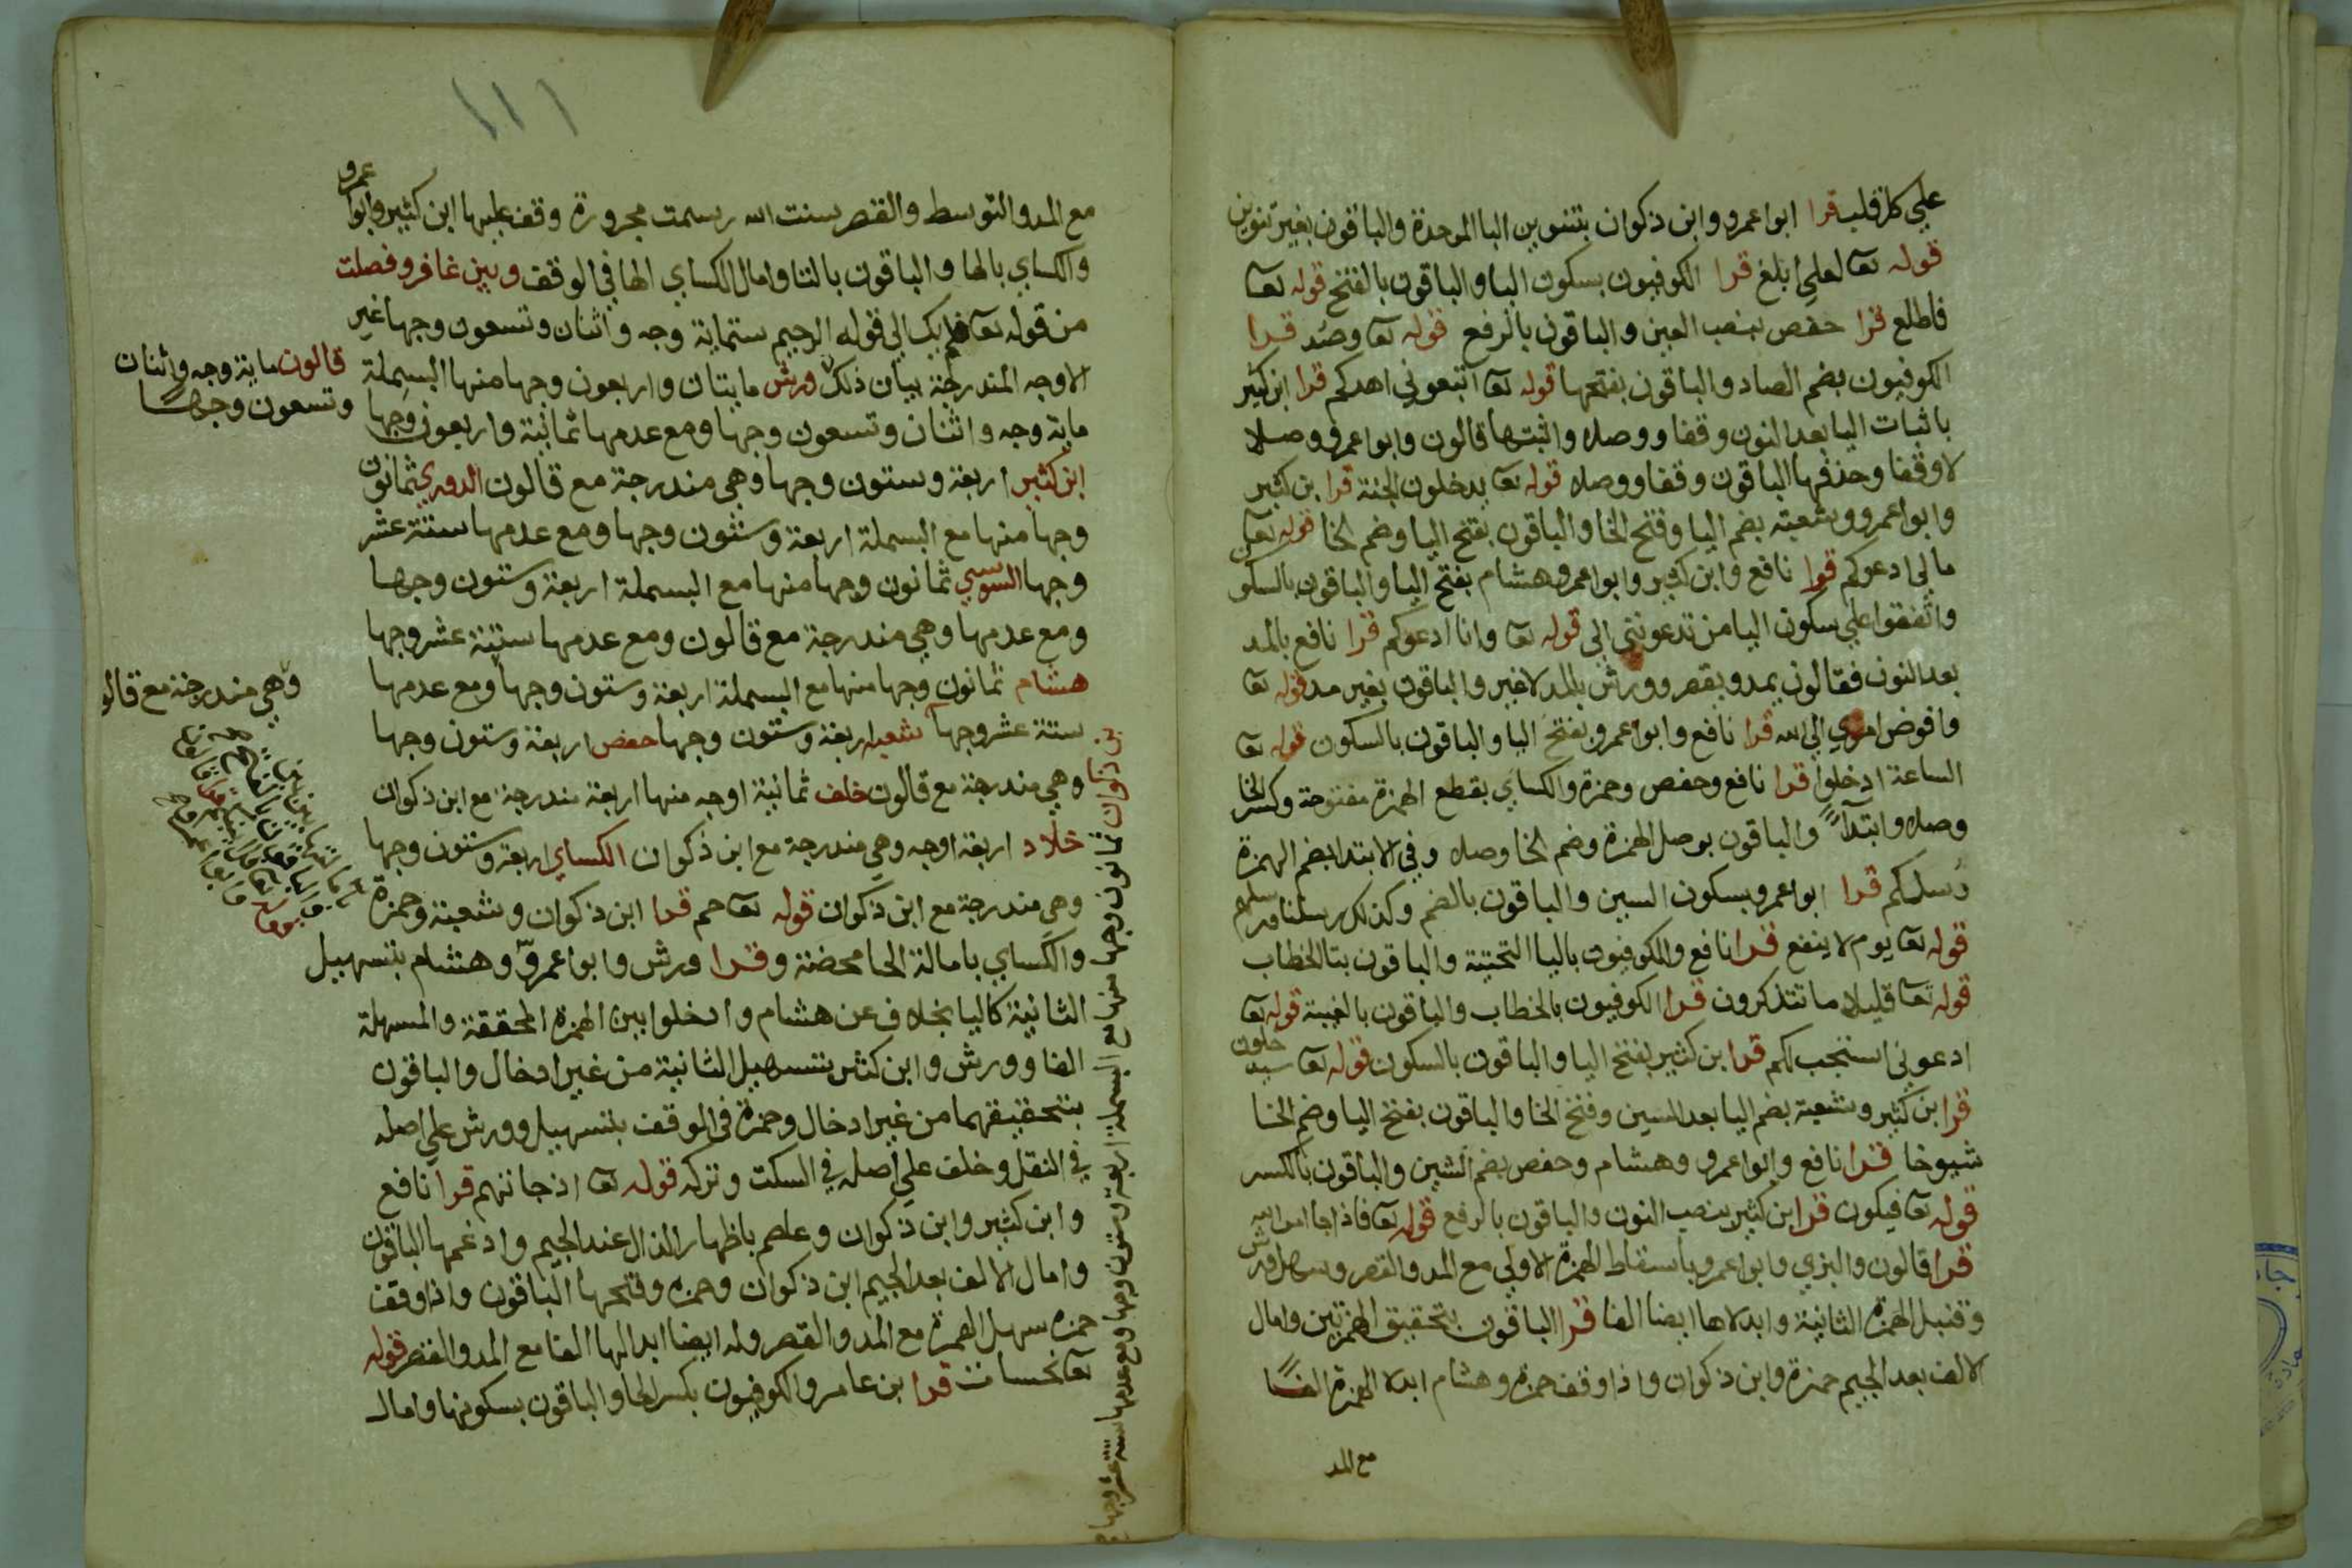 علي كل قلب قرا ابوا عمرو وابن ذكوان بتنوين البا الموحدة والباقون بغير تنوين
قوله تعا لعلي ابلغ قرا الكوفيون بسكون اليا والباقون بالفتح قوله تعا
فاطلع قرا حفص بنصب العين والباقون بالرفع قوله تعا وصُد قرا
الكوفيون بضم الصاد والباقون بفتحها قوله تعا اتبعوني اهدكم قرا ابن كثير
باثبات اليا بعد النون وقفا ووصلا واثبتها قالون وابوا عمرو وصلا
لا وقفا وحذفها الباقون وقفا ووصلا قوله تعا يدخلون الجنة قرا بن كثير
وابوا عمرو وشعبة بضم اليا وفتح الخا والباقون بفتح اليا وضم الخا قوله تعا
مالي ادعوكم قرا نافع وابن كثير وابوا عمرو وهشام بفتح اليا والباقون بالسكو
واتفقوا علي سكون اليا من تدعونني الي قوله تعا وانا ادعوكم قرا نافع بالمد
بعد النون فقالون يمد ويقصر وورش بالمد لا غير والباقون بغير مد قوله تعا
وافوض امري الي الله قرا نافع وابوا عمرو بفتح اليا والباقون بالسكون قوله تعا
الساعة ادخلوا قرا نافع وحفص وحمزة والكساي بقطع الهمزة مفتوحة وكسر الخا
وصلا وابتدآءً والباقون بوصل الهمزة وضم الخا وصلا وفي الابتدا بضم الهمزة
رُسلكم قرا ابوا عمرو بسكون السين والباقون بالضم وكذلك رسلنا ورسلهم
قوله تعا يوم لا ينفع قرا نافع والكوفيون باليا التحتية والباقون بتا الخطاب
قوله تعا قليلا ما تتذكرون قرا الكوفيون بالخطاب والباقون بالغيبة قوله تعا
ادعوني استجب لكم قرا ابن كثير بفتح اليا والباقون بالسكون قوله تعا سيدخلون
قرا بن كثير وشعبة بضم اليا بعد السين وفتح الخا والباقون بفتح اليا وضم الخا
شيوخا قرا نافع وابوا عمرو وهشام وحفص بضم الشين والباقون بالكسر
قوله تعا فيكون قرا ابن كثير بنصب النون والباقون بالرفع قوله تعا فاذا جا امر الله
قرا قالون والبزي وابوا عمرو باسقاط الهمزة الاولي مع المد والقصر وسهل ورش
وقنبل الهمزة الثانية وابدلاها ايضا الفا قرا الباقون بتحقيق الهمزتين وامال
الالف بعد الجيم حمزة وابن ذكوان واذا وقف حمزة وهشام ابدلا الهمزة الفًا
مع المد
١١١
مع المد والتوسط والقصر سنت الله رسمت مجرورة وقف عليها ابن كثير وابوا عمرو
والكساي بالها والباقون بالتا وامال الكساي الها في الوقف وبين غافر وفصلت
من قوله تعا فلم يك الي قوله الرحيم ستماية وجه واثنان وتسعون وجها غير
الاوجه المندرجة بيان ذلك ورش مايتان واربعون وجها منها البسملة
ماية وجه واثنان وتسعون وجها ومع عدمها ثمانية واربعون وجها
ابن كثير اربعة وستون وجها وهي مندرجة مع قالون الدوري ثمانون
وجها منها مع البسملة اربعة وستون وجها ومع عدمها ستة عشر
وجها السوسي ثمانون وجها منها مع البسملة اربعة وستون وجها
ومع عدمها وهي مندرجة مع قالون ومع عدمها ستة عشر وجها
هشام ثمانون وجها منها مع البسملة اربعة وستون وجها ومع عدمها
ستة عشر وجها شعبة اربعة وستون وجها حفص اربعة وستون وجها
وهي مندرجة مع قالون خلف ثمانية اوجه منها اربعة مندرجة مع ابن ذكوان
خلاد اربعة اوجه وهي مندرجة مع ابن ذكوان الكساي اربعة وستون وجها
وهي مندرجة مع ابن ذكوان قوله تعا حم قرا ابن ذكوان وشعبة وحمزة
والكساي بامالة الحا محضة وقرا ورش وابوا عمرو وهشام بتسهيل
الثانية كاليا بخلاف عن هشام وادخلوا بين الهمزة المحققة والمسهلة
الفا وورش وابن كثير بتسهيل الثانية من غير ادخال والباقون
بتحقيقهما من غير ادخال وحمزة في الوقف بتسهيل وورش علي اصله
في النقل وخلف علي اصله في السكت وتركه قوله تعا اذ جاتهم قرا نافع
وابن كثير وابن ذكوان وعاصم باظهار الذال عند الجيم وادغمها الباقون
وامال الالف بعد الجيم ابن ذكوان وحمزه وفتحها الباقون واذا وقف
حمزه سهل الهمزة مع المد والقصر وله ايضا ابدالها الفا مع المد والقصر قوله
تعا نحسات قرا بن عامر والكوفيون بكسر الحا والباقون بسكونها وامال
قالون ماية وجه واثنان
وتسعون وجهًا
وهي مندرجة مع قالو
بن ذكوان ثمانون وجها منها مع البسملة اربعة وستون وجها ومع عدمها ستة عشر وجها